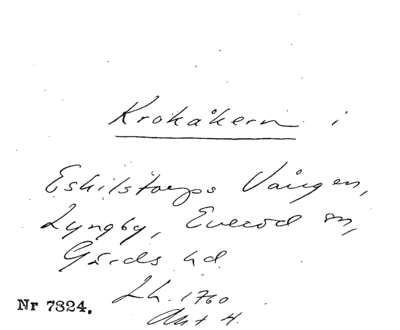 Krokåkern i
Eskilstorps Vången,
Lyngby, Everöd sn,
Gärds hd
Lh. 1760
Akt 4.
Nr 7824.